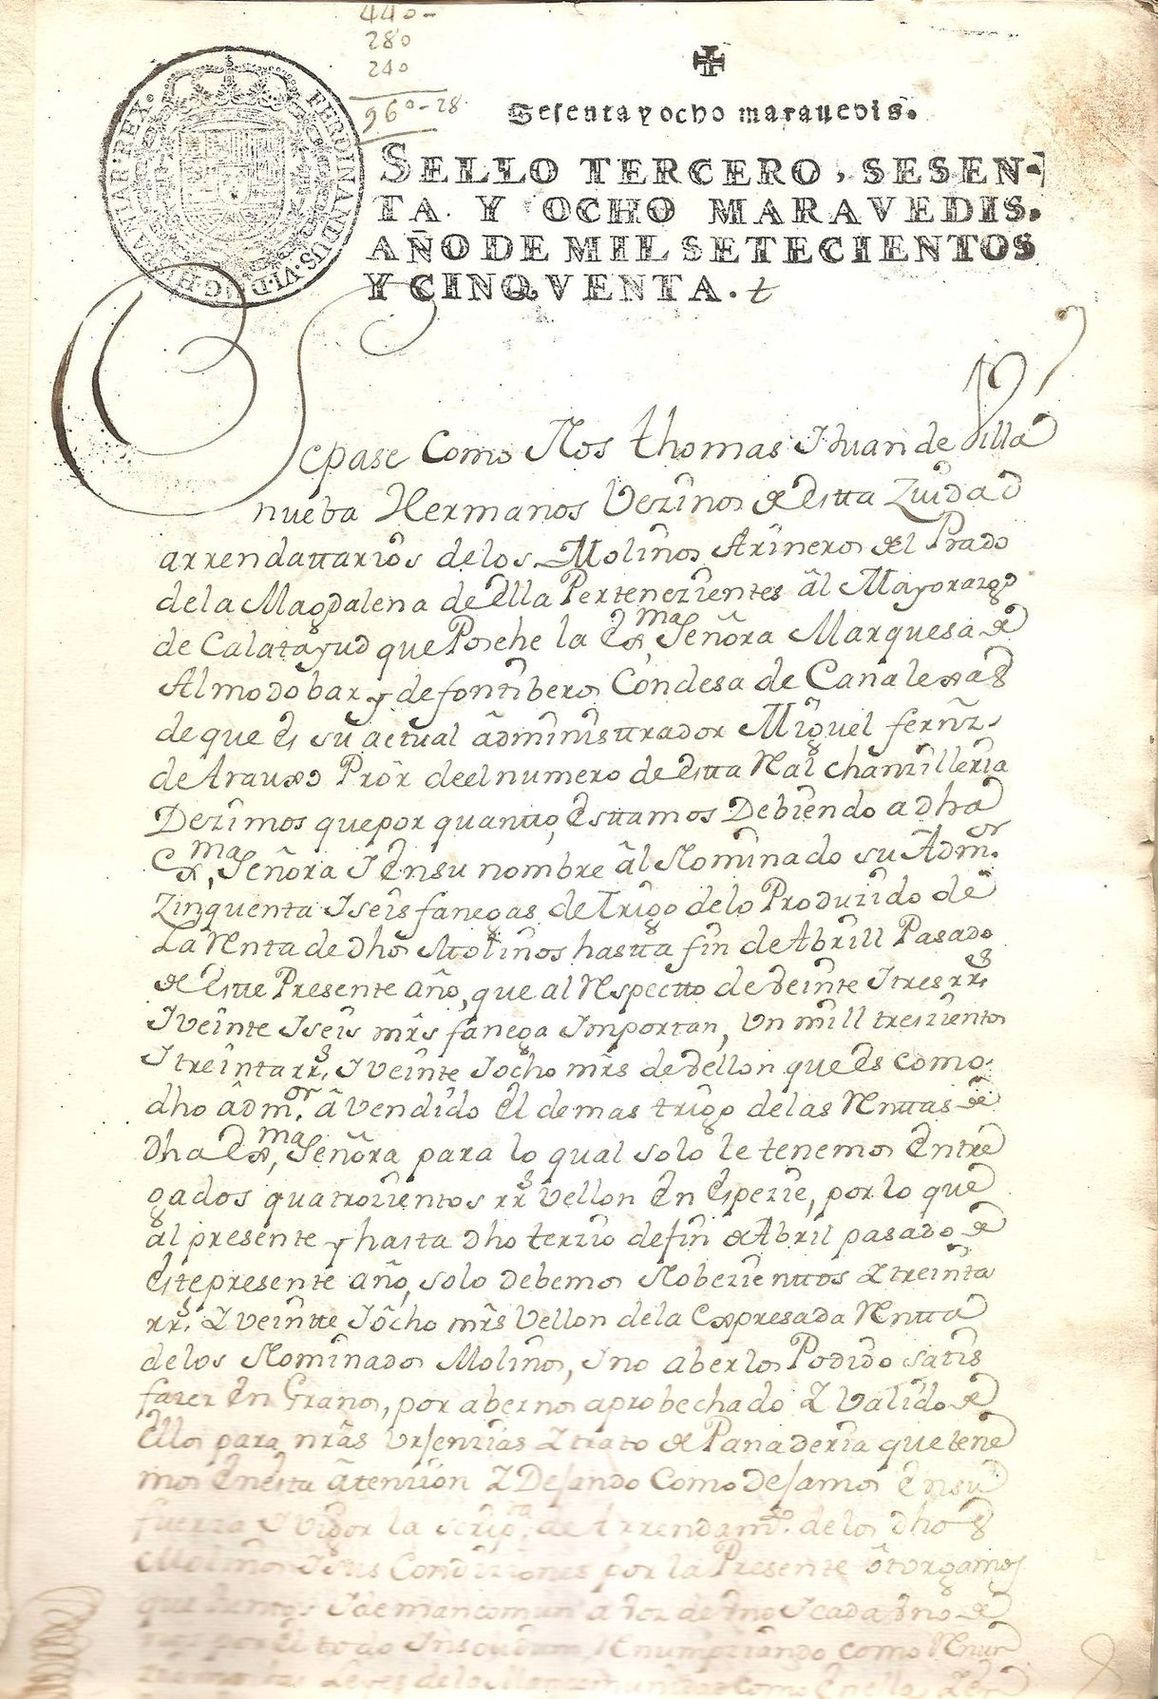 440-
280
240
960-28
FERDINANDUS·VI·D·G·HISPANIAR·REX·
Sesenta y ocho maravedis.
SELLO TERCERO, SESEN-
TA Y OCHO MARAVEDIS.
AÑO DE MIL SETECIENTOS
Y CINQVENTA. t
Sepase Como Nos thomas I Juan de Villa
nueba Hermanos Vezinos de estta Zuidad
arrendattarios de los Molinos Arineros del Prado
de la Magdalena de ella Pertenezientes âl Mayorazgo
de Calatayud que Posehe la Ex.ma Señora Marquesa de
Almodobar y de fontiberos Condesa de Canalexas
de que es su actual âdministtrador Miguel fernz.
de Arauxo Pror de el numero de estta Rl chanzilleria
Dezimos que por quantto, esttamos Debiendo a dha
Ex.ma Señora I en su nombre âl Nominado su Adm.or
Zinquenta I seis fanegas de trigo de lo Produzido de
La Renta de dhos Molinos hastta fin de Abrill Pasado
de estte Presente año, que al Respectto de veinte I tres rr.s
I veinte I seis mrs fanega Importan, Un mill trezientos
I treinta rr.s, I veinte I ocho mrs de vellon que es como
dho adm.or â vendido el demas trigo de las Renttas de
dha Ex.ma Señora para lo qual solo le tenemos entre
gados quatrozientos rr.s Vellon en espezie, por lo que
al presente y hasta dho terzio de fin de Abril pasado de
este presente año, solo debemos Nobezienttos I treinta
rr.s, I veintte I ôcho mrs Vellon de la expresada Rentta
de los Nominados Molinos, I no aberlos Podido satis
fazer en Granos, por abernos aprobechado I Valido de
ellos para nrâs Urjenzias I trato de Panaderia que tene
mos en esta âtenzion I Dejando Como dejamos en su
fuerza I vigor la scrip.ra de Arrendam.to de los dhos
Molinos I sus Condiziones por la Presente ôtorgamos
que Juntos I de mancomun a voz de uno I cada uno de
por el todo Insolidum Renunziando como Renun
Leyes de la Mancomunidad como en ellas